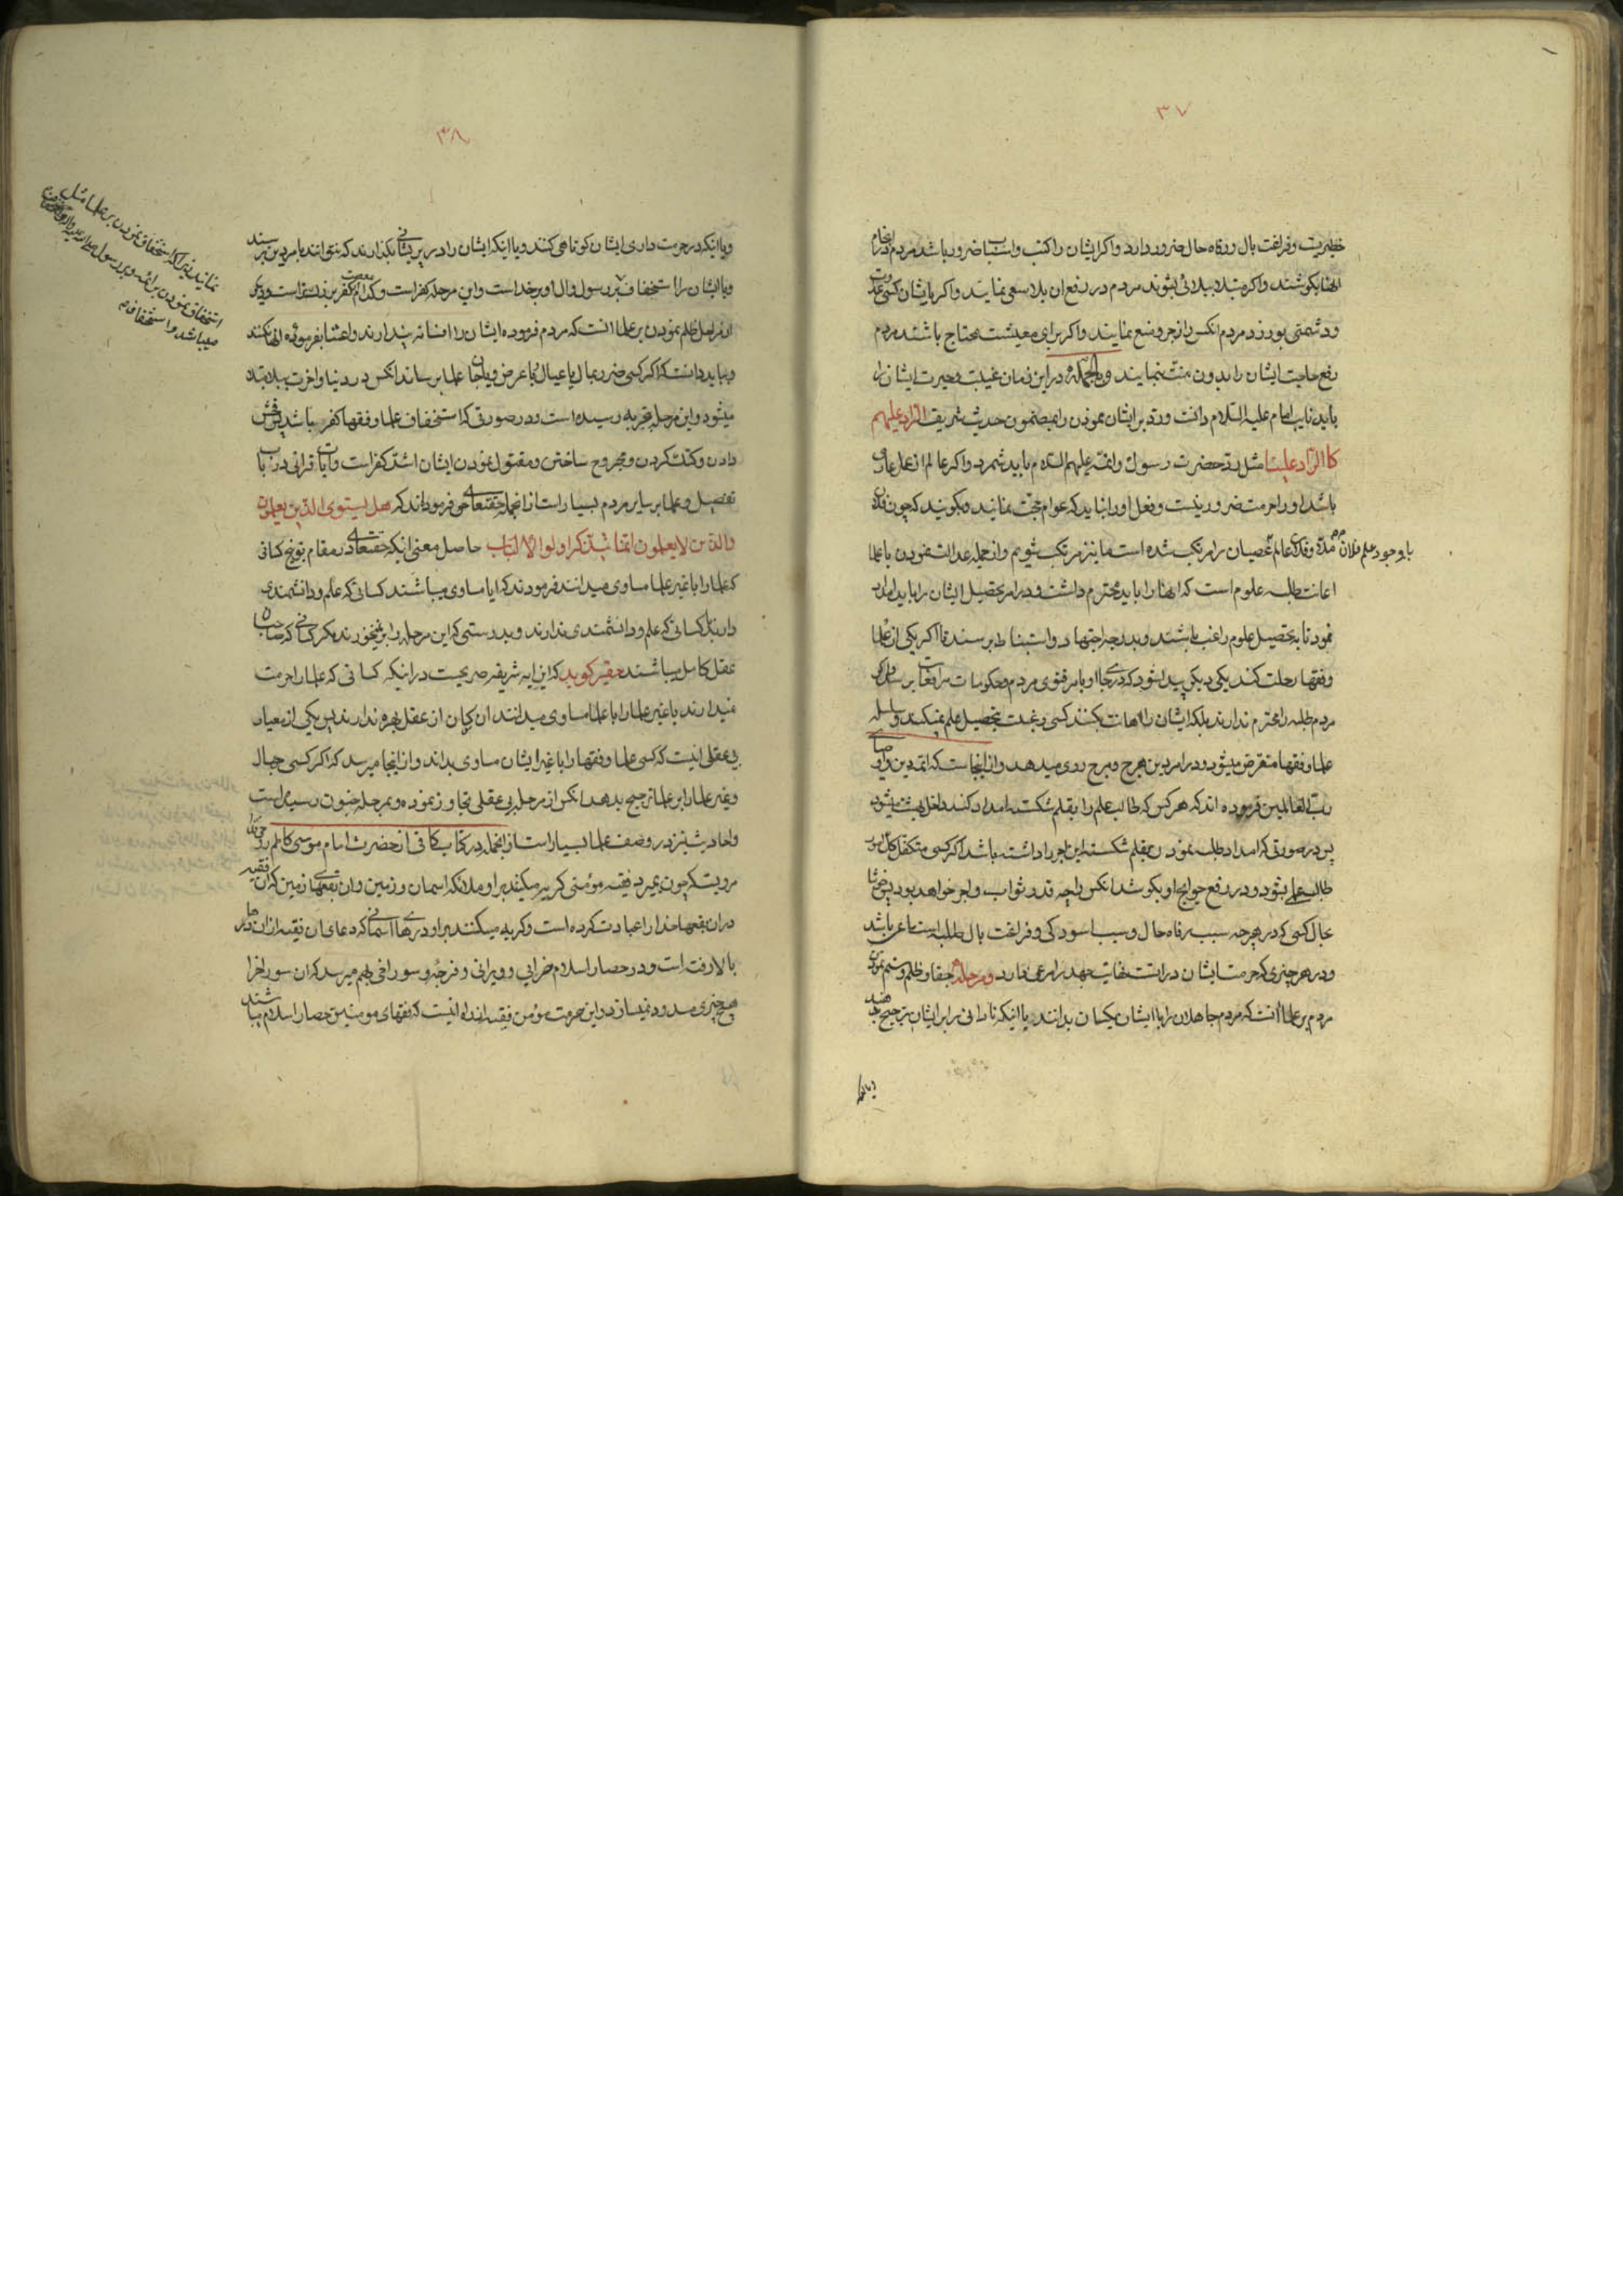 ۳۷
خطیریت و فراغت بال و رفاه حال ضرور دارد و اگر ایشان را کتب و اسباب ضرور باشد مردم در انجام
انها بکوشند و اگر مبتلا ببلائی بشوند مردم در رفع ان بلا سعی نمایند و اگر با ایشان کسی عداوت
و دشمنی بورزد مردم انکس را زجر و منع نمایند و اگر برای معیشت محتاج باشند مردم
رفع حاجت ایشان را بدون منت بنمایند و بالجمله در این زمان غیبت و حیرت ایشان را
باید نایب امام علیه السّلام دانست و رد بر ایشان نمودن را بمضمون حدیث شریف الرّاد علیهم
کالرّاد علینا مثل رد حضرت رسول و ائمه علیهم السّلام باید شمرد و اگر عالم از عمل عاری
باشد او را حرمت ضرور نیست و فعل او را نباید که عوام حجّت نمایند و بگویند که چون فلان
عالم عصیان را مرتکب شده است ما نیز مرتکب شویم و از جمله عدالت نمودن با علما
با وجود علم فلان
اعانت طلبه علوم است که انها را باید محترم داشت و در امر تحصیل ایشان را باید امداد
نمود تا به تحصیل علوم راغب باشند و بدرجه اجتهاد و استنباط برسند تا اگر یکی از علما
و فقها رحلت کند یکی دیگر پیدا شود که در جا او بامر فتوی مردم و حکومات مرافعات برسد و اگر
مردم طلبه را محترم ندارند بلکه ایشان را اهانت بکنند کسی رغبت بتحصیل علم نمیکند و سلسله
علما و فقها منقرض میشود و در امر دین هرج و مرج روی میدهد و از اینجاست که ائمه دین و اوصیای
رب العالمین فرموده اند که هر کس که طالب علم را بقلم شکسته امداد کند داخل بهشت میشود
پس در صورتی که امداد طلبه نمودن بقلم شکسته این اجر را داشته باشد اگر کسی متکفل کل امور
طالب علم بشود و در رفع حوایج او بکوشد انکس را چه قدر ثواب و اجر خواهد بود پس خوشا
بحال کسی که در هر چه سبب رفاه حال و سبب اسودگی و فراغت بال طلبه است ساعی باشد
و در هر چیزی که حرمت ایشان در انست غایت جهد را مرعی دارد و مرحله جفا و ظلم و ستم نمودن
مردم بر علما انست که مردم جاهلان را با ایشان یکسان بدانند یا اینکه نادانی را بر ایشان ترجیح بدهند
و یا اینکه
۳۸
و یا اینکه در حرمت داری ایشان کوتاهی کنند و یا اینکه ایشان را در پریشانی بگذارند که نتوانند بامر دین برسند
و یا ایشان را استخفاف
از مراحل ظلم نمودن بر علما انست که مردم فرموده ایشان را افسانه پندارند و اعتنا بفرموده انها نکنند
و بباید دانست که اگر کسی ضرر بمال یا عیال یا عرض و یا جان علما برساند انکس در دنیا و اخرت ببلا مبتلا
میشود و این مرحله بتجربه رسیده است و در صورتی که استخفاف علما و فقها کفر باشد پس فحش
دادن و کتک کردن و مجروح ساختن و مقتول نمودن ایشان اشد کفر است و ایات قرانی در باب
تفضیل علما بر سایر مردم بسیار است از انجمله حقتعالی می فرموداند که هل یستوی الّذین یعلمون
والّذین لا یعلمون انّما یتذکر اولوا الالباب حاصل معنی اینکه حقتعالی در مقام توبیخ کسانی
که علما را با غیر علما مساوی میدانند فرمودند که ایا مساوی میباشند کسانی که علم و دانشمندی
دارند با کسانی که علم و دانشمندی ندارند و بدرستی که این مرحله را بر نمیخورند مگر کسانی که صاحبان
عقل کامل میباشند حقیر گوید که این ایه شریفه صریحست در اینکه کسانی که علما را حرمت
نمیدارند یا غیر علما را با علما مساوی میدانند ان کسان از عقل بهره ندارند پس یکی از معیار
بی عقلی انیست که کسی علما و فقها را با غیر ایشان مساوی بداند و از اینجا میرسد که اگر کسی جهال
و غیر علما را بر علما ترجیح بدهد انکس از مرحله بی عقلی تجاوز نموده و بمرحله جنون رسیده است
و احادیث نیز در وصف علما بسیار است از انجمله در کتاب کافی از حضرت امام موسی کاظم
مرویست که چون بمیرد فقیه مؤمنی گریه میکند بر او ملائکه اسمان و زمین و ان بقعهای زمین که ان فقیه
در ان بقعها خدا را عبادت کرده است و گریه میکنند بر او درهای اسمانی که دعای ان فقیه از ان درها
بالا رفته است و در حصار اسلام خرابی و ویرانی و فرجه و سوراخی بهم میرسد که ان سوراخ را
هیچ چیزی مسدود نمیسازد و این حرمت مؤمن فقیه از برای انیست که فقهای مومنین حصار اسلام میباشند
نمایند زیرا که استخفاف نمودن بر علما مثل
استخفاف نمودن بر ائمه و بر رسول
میباشد و استخفاف